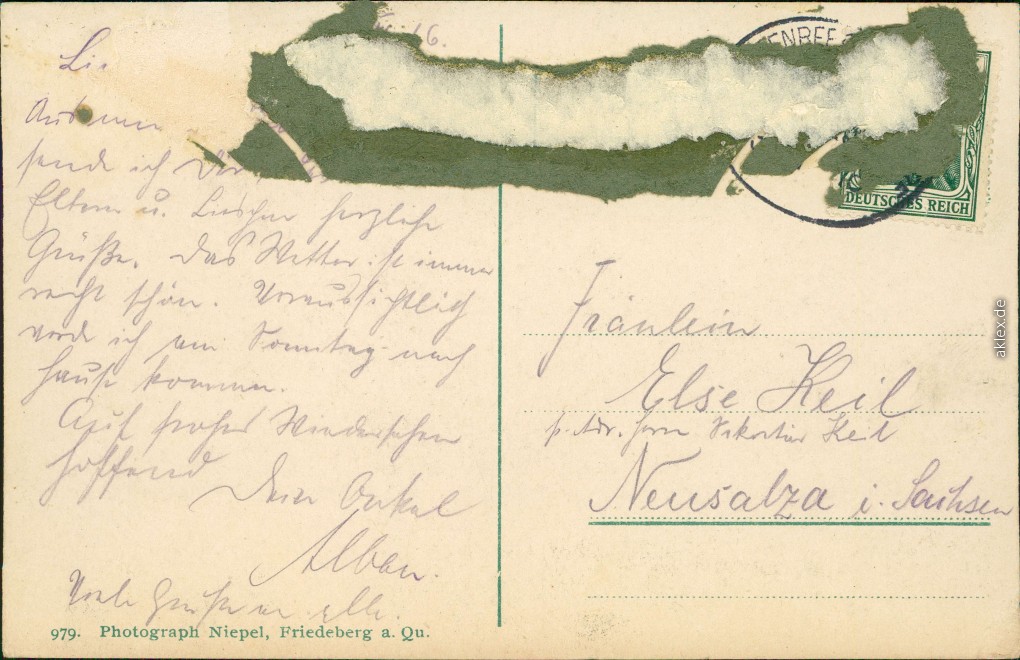 16.
Aus
sende ich
Eltern u. Lieschen herzliche
Grüße. Das Wetter ist immer
recht schön. Voraussichtlich
werde ich am Sonntag nach
Hause kommen.
Auf frohes Wiedersehen
hoffend
Dein Onkel
Alban.
Viele Grüße an alle.
979. Photograph Niepel, Friedeberg a. Qu.
DEUTSCHES REICH
Fräulein
Else Keil
p. Adr. Herrn Sekretär Keil
Neusalza i. Sachsen
aklex.de